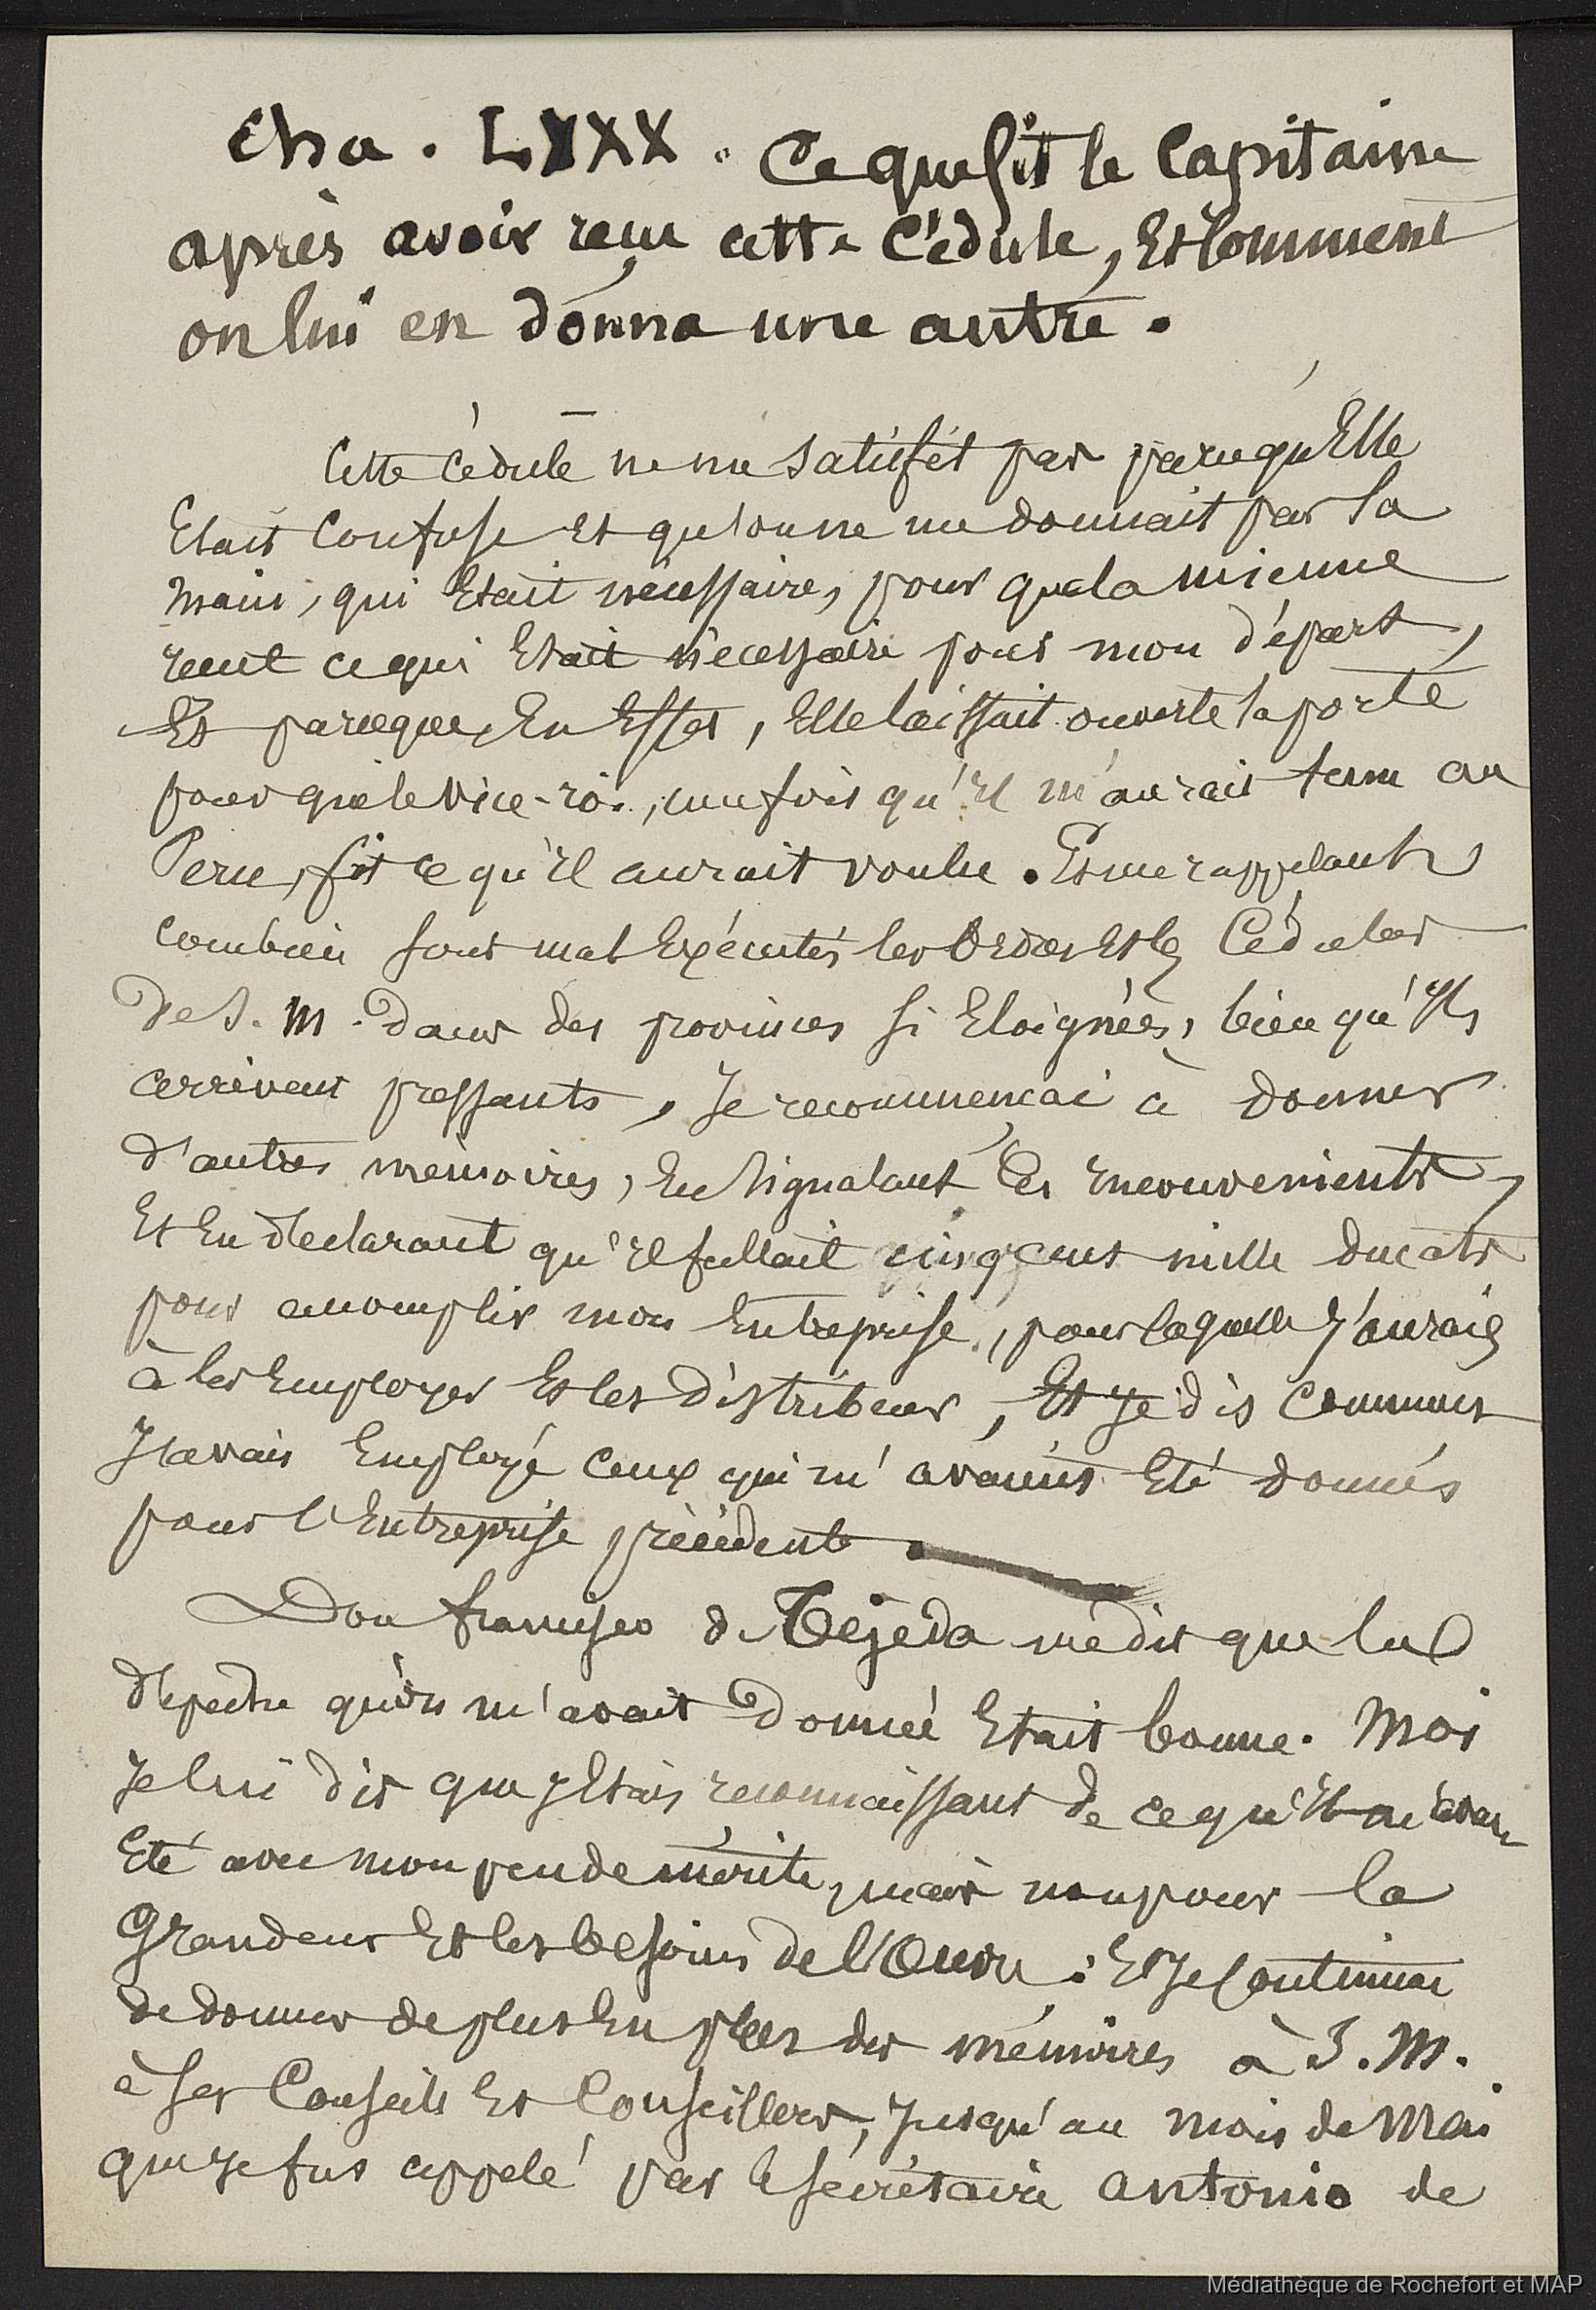 Cha. LXXX. Ce que fit le Capitaine
après avoir reçu cette Cédule, Et Comment
on lui en donna une autre.
Cette Cédule ne me satisfit pas parce qu'Elle
Etait Confuse Et qu'on ne me donnait pas la
main, qui Etait nécessaire, pour que la mienne
reçut ce qui Etait nécessaire pour mon départ,
Et parceque, En Effet, Elle laissait ouverte la porte
pour que le Vice-roi, une fois qu'Il m'aurait tenu au
Perou, fit ce qu'Il aurait voulu. Et me rappelant
combien sont mal Exécutés les Ordres Et les Cédules
de S. M. dans des provinces si Eloignées, bien qu'Ils
arrivent pressants, Je recommençai à donner
d'autres mémoires, En signalant les Inconvenients,
Et En déclarant qu'Il fallait cinq cent mille ducats
pour accomplir mon Entreprise, pour laquelle J'aurais
à les Employer Et les distribuer, Et Je dis Comment
J'avais Employé Ceux qui m'avaient Eté donnés
pour l'Entreprise précédente
Don Francisco de Tejeda me dit que la
dépêche qu'on m'avait donnée Etait bonne. Moi
Je lui dis que J'Etais reconnaissant de ce qu'Il m'avait
Eté avec mon peu de mérite, mais non pour la
Grandeur Et les besoins de l'Œuvre : Et Je Continuai
de donner de plus En plus des mémoires à S. M.
à ses Conseils Et Conseillers, Jusqu'au mois de Mai
que Je fus appelé par le secrétaire Antonio de
Médiathèque de Rochefort et MAP